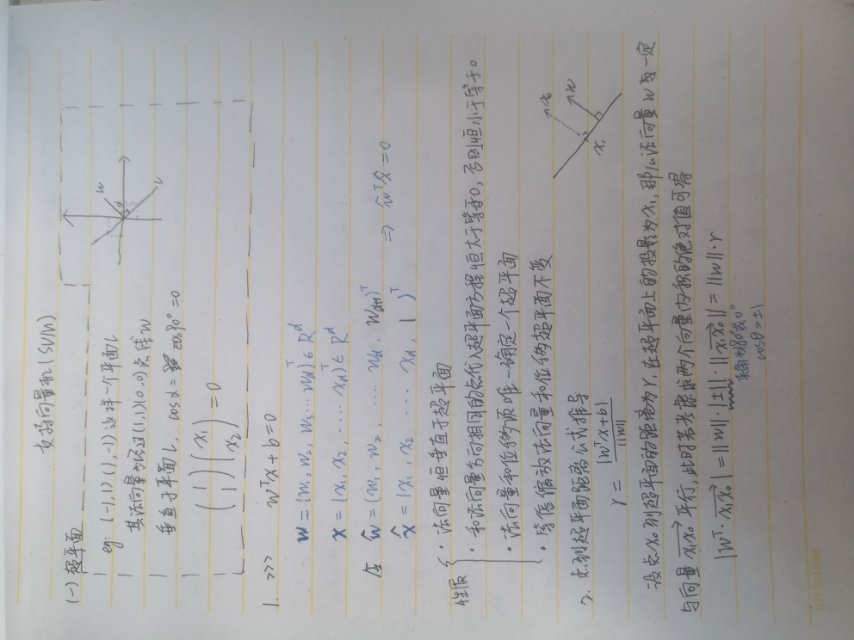 支持向量机(SVM)
(一) 超平面
eg: (-1,1) (1,-1) 这样一个平面l
其法向量为经过(1,1)(0,0)点线w
垂直于平面l, cosα = cos90° = 0
(1 1) (x₁ x₂) = 0
w
l
α
1. >>> wᵀx + b = 0
w = (w₁, w₂, w₃ ... w_d)ᵀ ∈ Rᵈ
x = (x₁, x₂, ..... x_d)ᵀ ∈ Rᵈ
令 ŵ = (w₁, w₂, .... w_d, w_{d+1})ᵀ
x̂ = (x₁, x₂ ... x_d, 1)ᵀ ⇒ ŵᵀx̂ = 0
性质 { · 法向量恒垂直于超平面
· 和法向量方向相同的点代入超平面方程恒大于等于0, 否则恒小于等于0。
· 法向量和位移项唯一确定一个超平面
· 等倍缩放法向量和位移超平面不变
2. 点到超平面距离公式推导
r = |wᵀx+b| / ||w||
x₀
w
x₁
设点x₀到超平面的距离为r, 在超平面上的投影为x₁, 那么法向量w就一定
与向量 x₁x₀ 平行, 此时若考虑求两个向量内积的绝对值可得
|wᵀ · x₁x₀| = ||w|| · |±1| · ||x₁x₀|| = ||w|| · r
夹角为180°或0°
cosθ = ±1